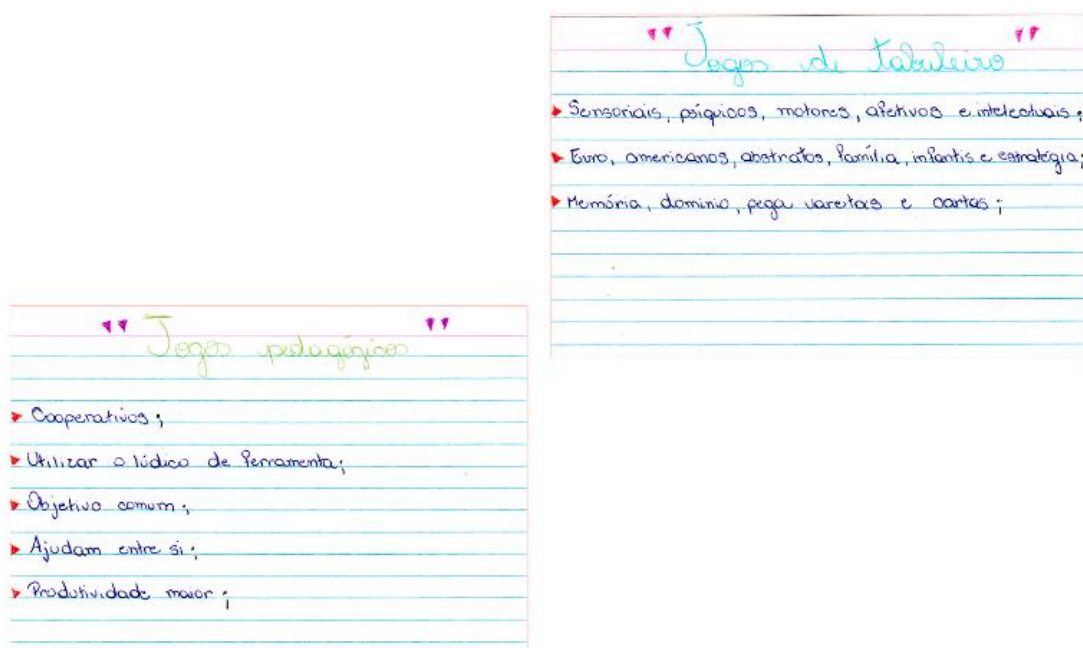 " Jogos de tabuleiro "
Sensoriais, psíquicos, motores, afetivos e intelectuais;
Euro, americanos, abstratos, família, infantis e estratégia;
Memória, dominio, pega varetas e cartas;
" Jogos pedagógicos "
Cooperativos;
Utilizar o lúdico de ferramenta;
Objetivo comum;
Ajudam entre si;
Produtividade maior;